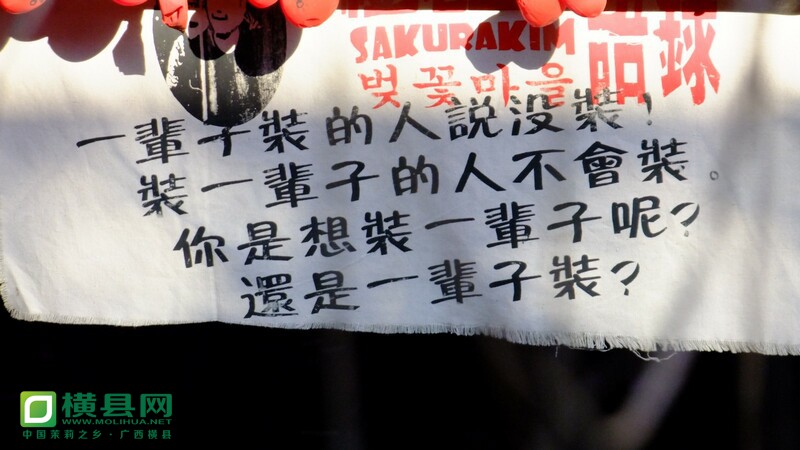 SAKURAKIM
벚꽃마을
一輩子裝的人說没裝!
裝一輩子的人不會裝。
你是想裝一輩子呢?
還是一輩子裝?
横县网
WWW.MOLIHUA.NET
中国茉莉之乡·广西横县